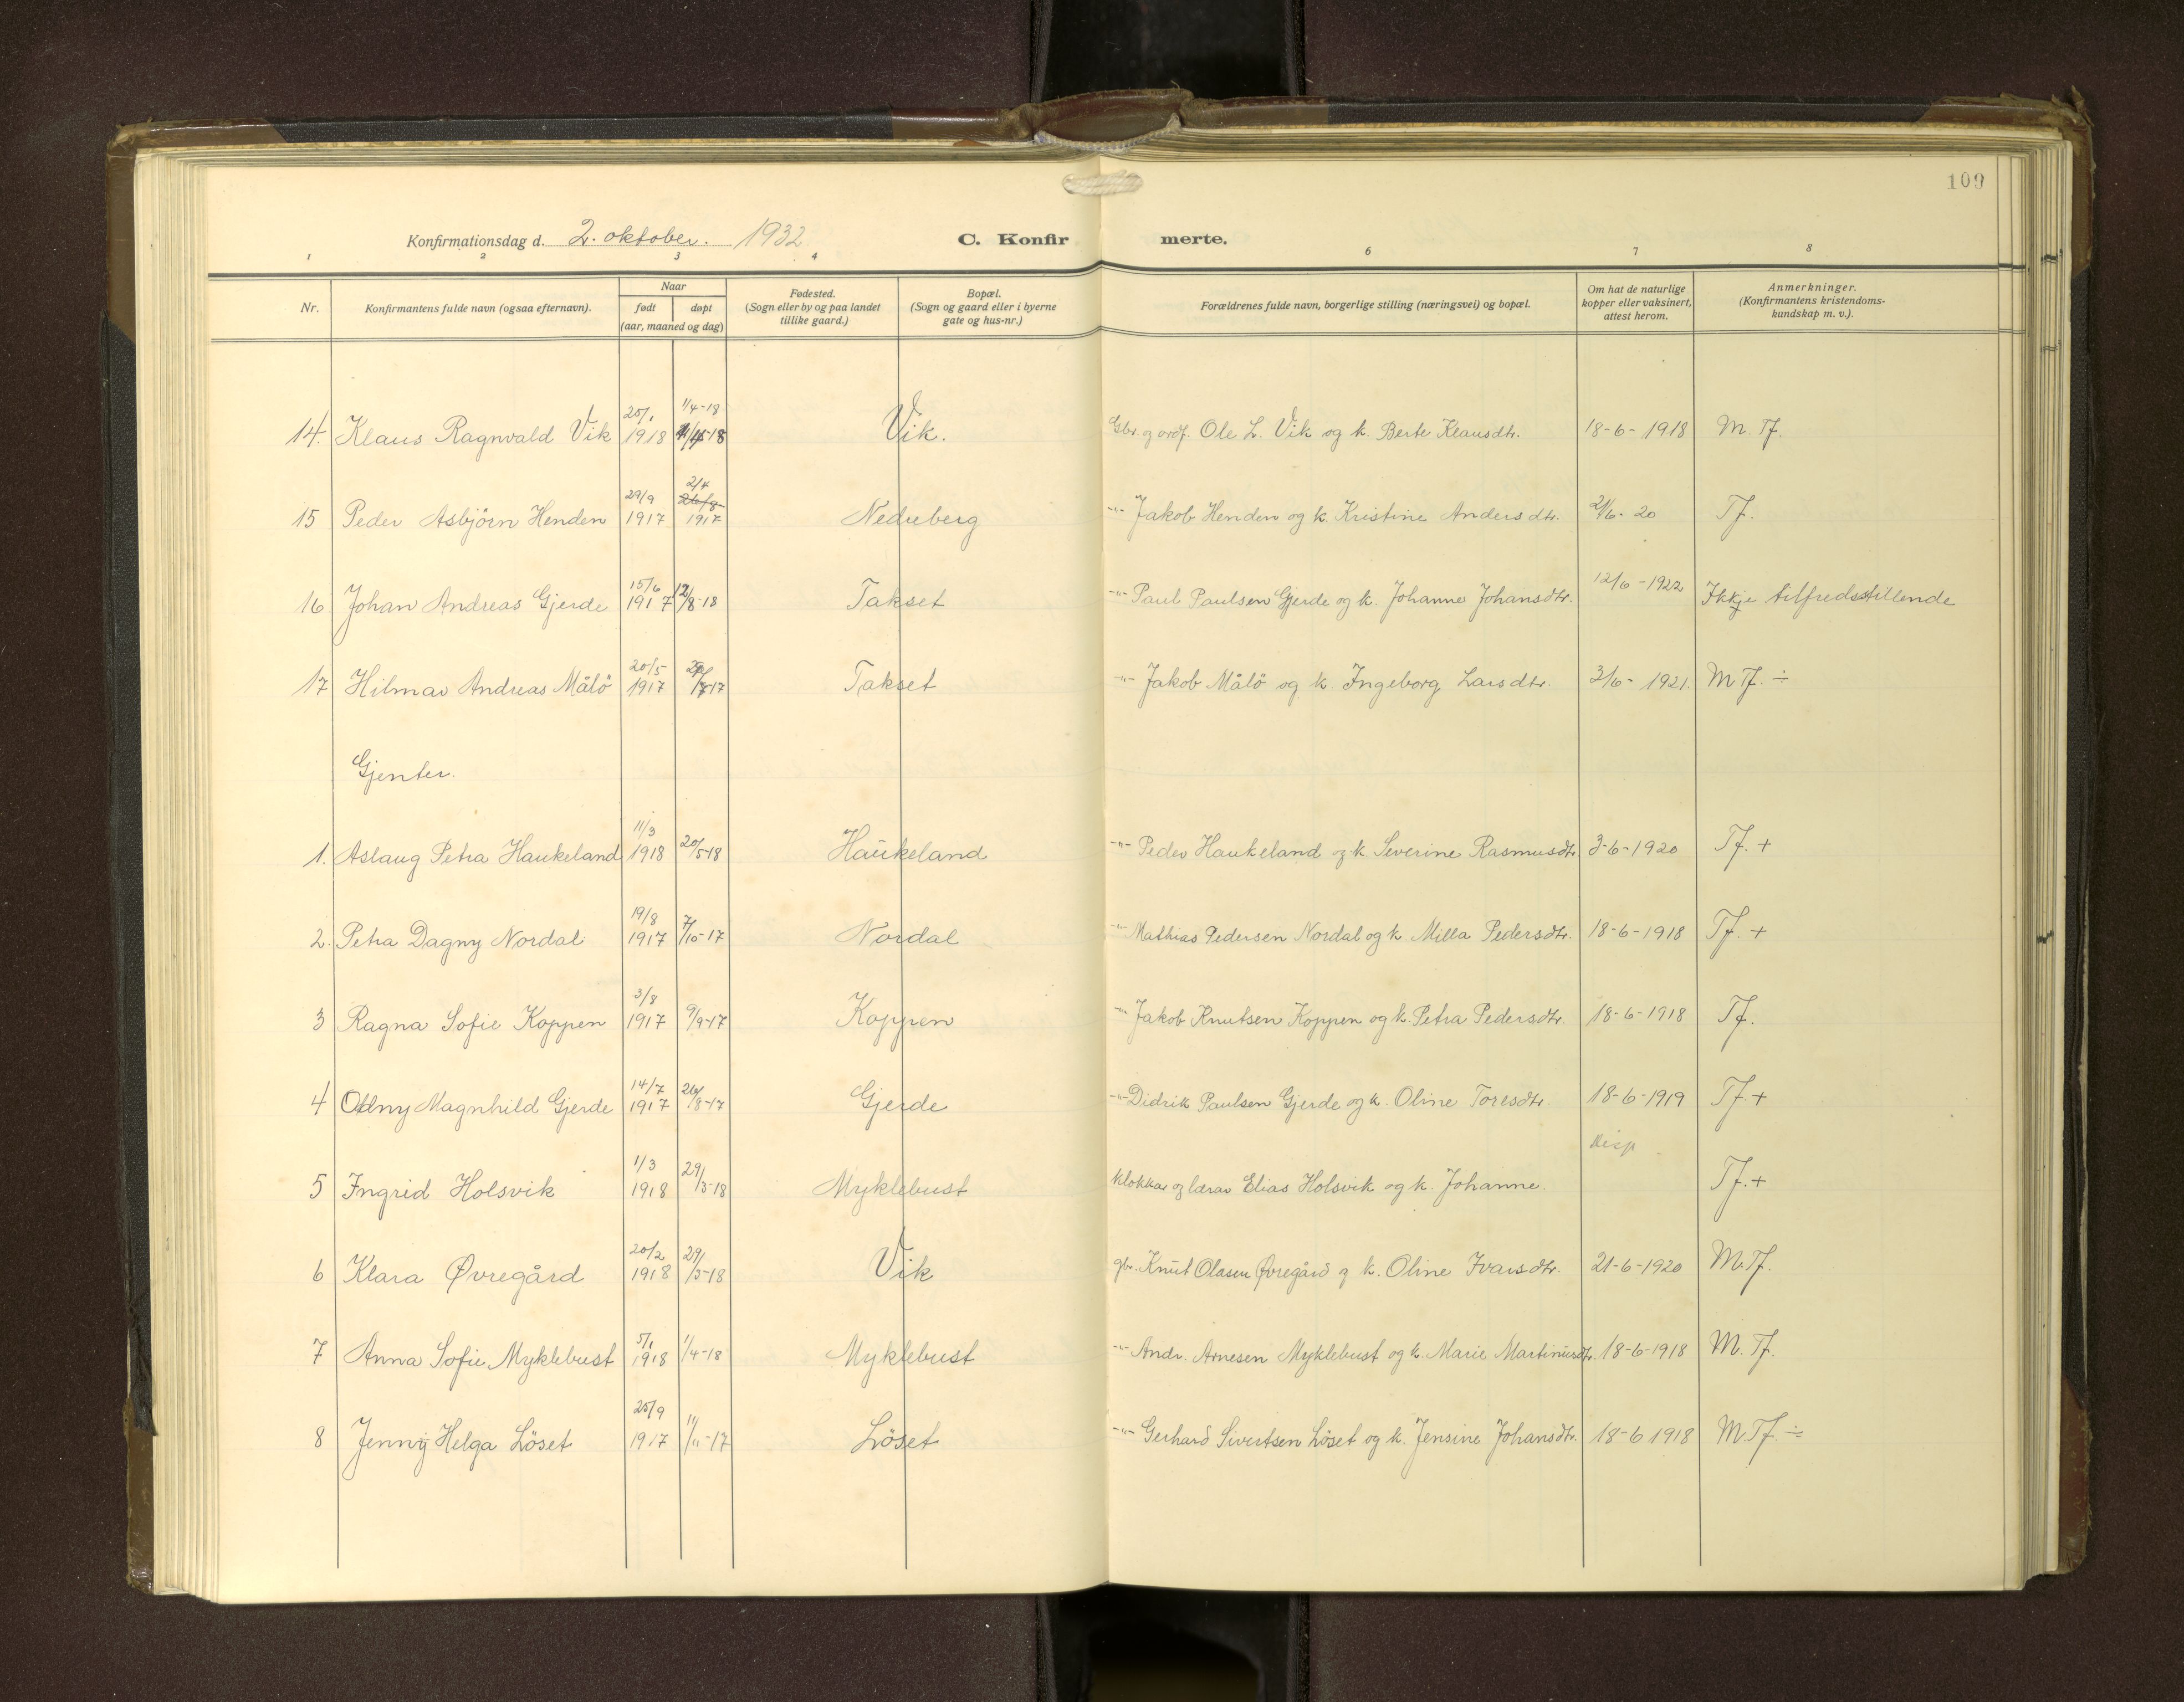 109
Konfirmationsdag d. 2. oktober. 1932
C. Konfirmerte.
1 2 3 4 6 7 8
Nr.
Konfirmantens fulde navn (ogsaa efternavn).
Naar
født døpt
(aar, maaned og dag)
Fødested.
(Sogn eller by og paa landet
tillike gaard.)
Bopæl.
(Sogn og gaard eller i byerne
gate og hus-nr.)
Forældrenes fulde navn, borgerlige stilling (næringsvei) og bopæl.
Om hat de naturlige
kopper eller vaksinert,
attest herom.
Anmerkninger.
(Konfirmantens kristendoms-
kundskap m. v.).
25/1 1/4-18
14. Klaus Ragnvald Vik 1918 Vik. Gbr. og ordf. Ole L. Vik og k. Berte Klausdtr. 18-6-1918 M. Tf.
29/9 2/4
15 Peder Asbjörn Henden 1917 1917 Nedreberg -"- Jakob Henden og k. Kristine Andersdtr. 21/6-20 Tf.
15/6 12/6-1922
16 Johan Andreas Gjerde 1917 12/8-18 Takset -"- Paul Paulsen Gjerde og k. Johanne Johansdtr. Ikkje tilfredsstillende
20/5
17 Hilmar Andreas Målö 1917 Takset -"- Jakob Målö og k. Ingeborg Larsdtr. 3/6-1921. M Tf. ÷
Gjenter.
11/3
1. Aslaug Petra Haukeland 1918 20/5-18 Haukeland -"- Peder Haukeland og k. Severine Rasmusdtr. 3-6-1920 Tf. +
19/8
2. Petra Dagny Nordal 1917 7/10-17 Nordal -"- Mathias Pedersen Nordal og k Milla Pedersdtr. 18-6-1918 Tf. +
3/8
3 Ragna Sofie Koppen 1917 9/9-17 Koppen -"- Jakob Knutsen Koppen og k. Petra Pedersdtr. 18-6-1918 Tf.
14/7
4 Magnhild Gjerde 1917 26/8-17 Gjerde -"- Didrik Paulsen Gjerde og k. Oline Toresdtr. 18-6-1919 Tf +
Disp
1/3
5 Ingrid Holsvik 1918 29/3-18 Myklebust Klokkar og lærar Elias Holsvik og k. Johanne. Tf. +
20/2
6 Klara Øvregård 1918 29/3-18 Vik gbr. Knut Olasen Øvregård og k. Oline Ivarsdtr. 21-6-1920 M. Tf.
5/1
7 Anna Sofie Myklebust 1918 1/4-18 Myklebust -"- Andr. Arnesen Myklebust og k. Marie Martinusdtr. 18-6-1918 M. Tf.
25/9
8 Jenny Helga Löset 1917 11/11-17 Löset -"- Gerhard Sivertsen Löset og k. Jensine Johansdtr. 18-6 1918 M. Tf. ÷